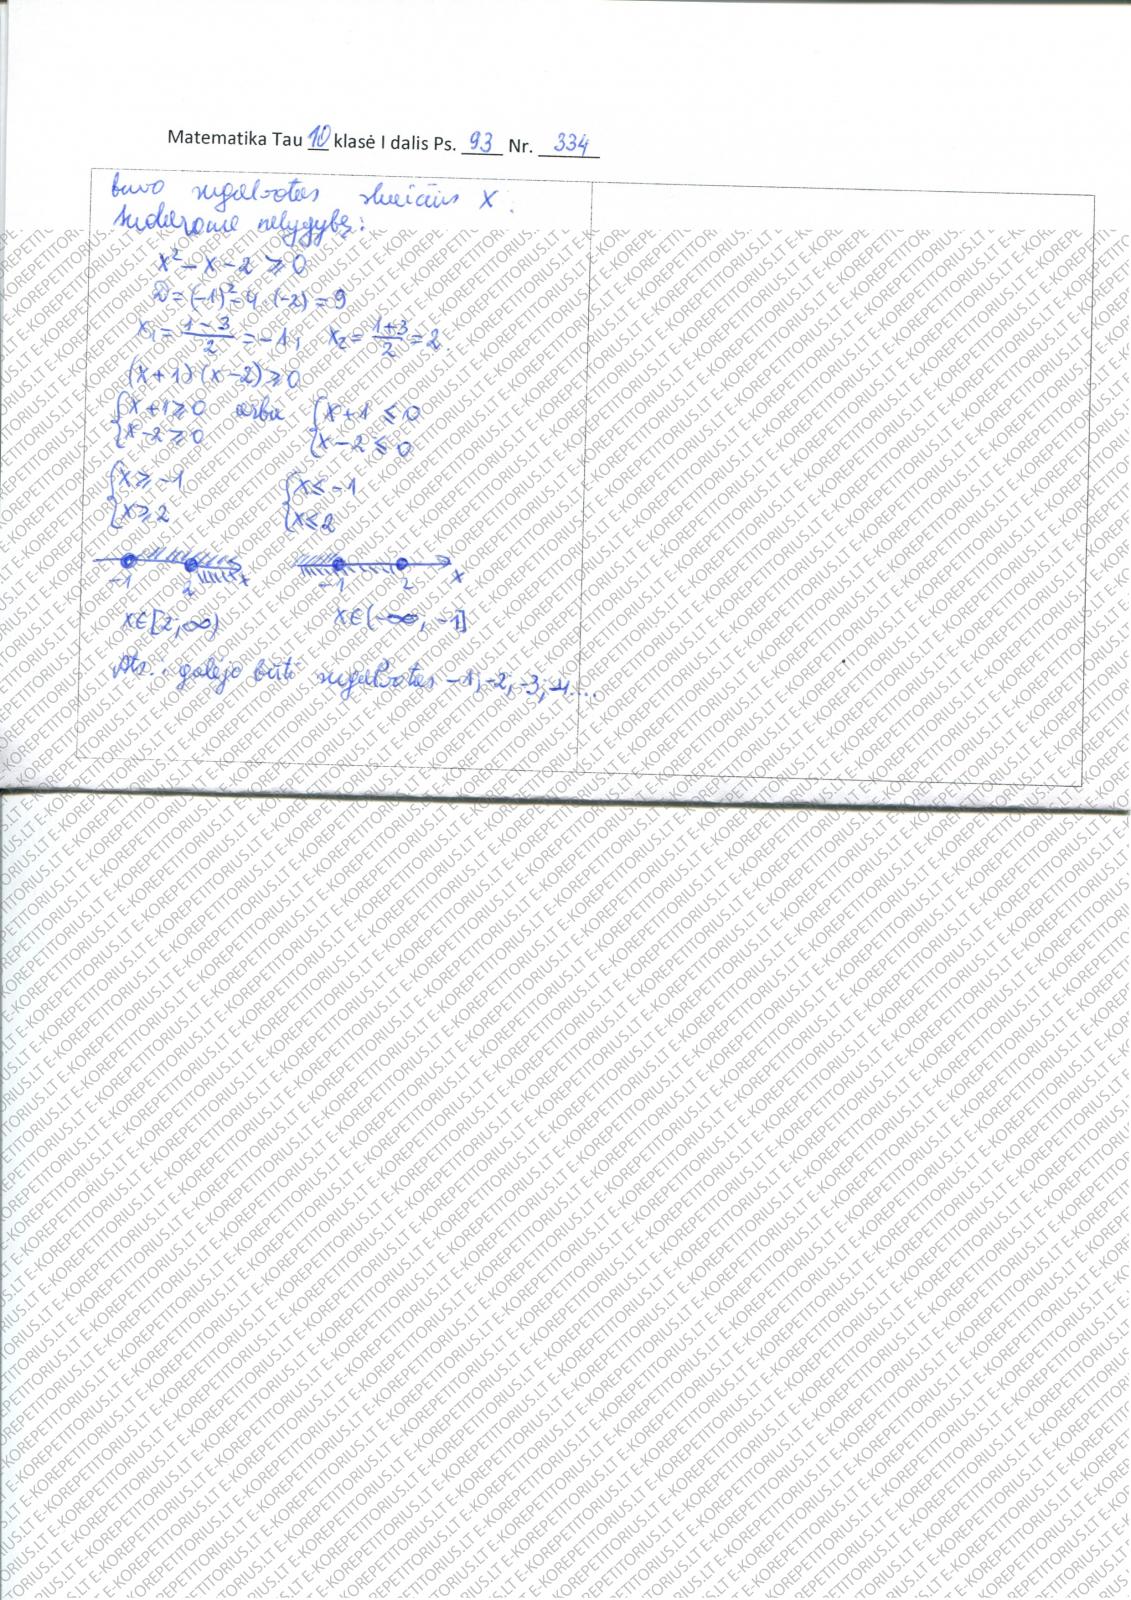 Matematika Tau 10 klasė I dalis Ps. 93 Nr. 334
buvo sugalvotas skaičius x.
Sudarome nelygybę:
x² − x − 2 ⩾ 0
D = (−1)² − 4 · (−2) = 9
x₁ = (1−3)/2 = −1; x₂ = (1+3)/2 = 2.
(x+1)(x−2) ⩾ 0
{x+1 ⩾ 0 arba {x+1 ⩽ 0
{x−2 ⩾ 0 {x−2 ⩽ 0
{x ⩾ −1 {x ⩽ −1
{x ⩾ 2 {x ⩽ 2
−1 2 x −1 2 x
x∈[2; ∞) x∈(−∞; −1]
Ats.: galėjo būti sugalvotas −1; −2; −3; −4...
E-KOREPETITORIUS.LT